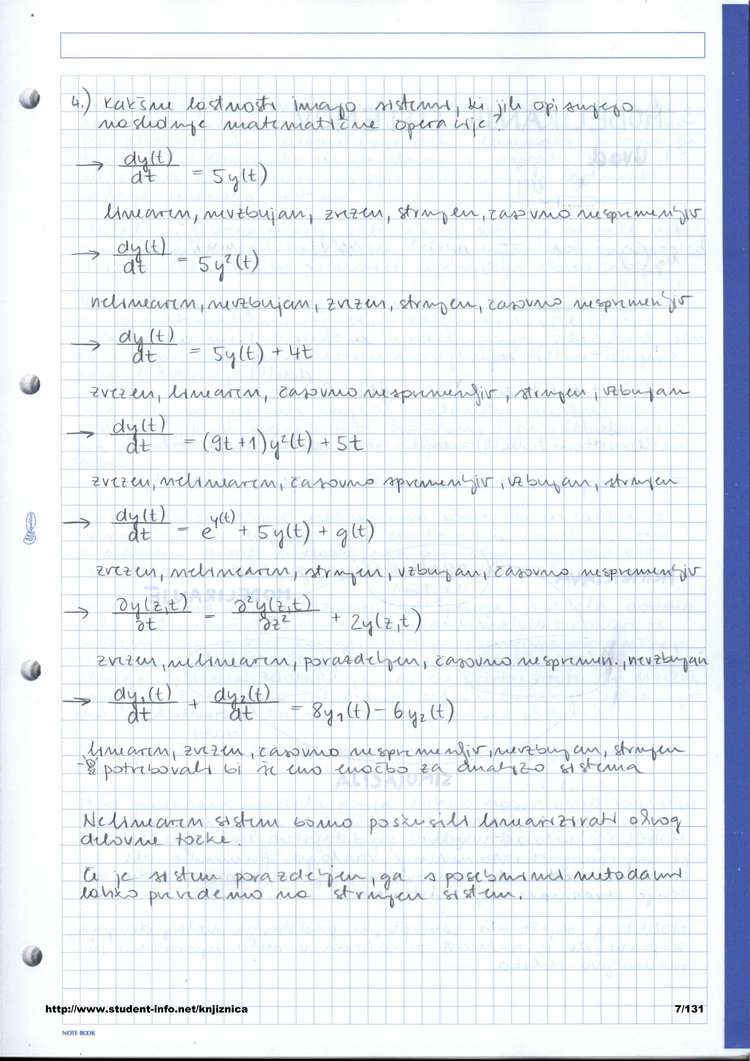 4.) Kakšne lastnosti imajo sistemi, ki jih opisujejo
naslednje matematične operacije?
→ dy(t)/dt = 5y(t)
linearen, nevzbujan, zvezen, strnjen, časovno nespremenljiv
→ dy(t)/dt = 5y²(t)
nelinearen, nevzbujan, zvezen, strnjen, časovno nespremenljiv
→ dy(t)/dt = 5y(t) + 4t
zvezen, linearen, časovno nespremenljiv, strnjen, vzbujan
→ dy(t)/dt = (9t+1)y²(t) + 5t
zvezen, nelinearen, časovno spremenljiv, vzbujan, strnjen
→ dy(t)/dt = e^y(t) + 5y(t) + g(t)
zvezen, nelinearen, strnjen, vzbujan, časovno nespremenljiv
→ ∂y(z,t)/∂t = ∂²y(z,t)/∂z² + 2y(z,t)
zvezen, nelinearen, porazdeljen, časovno nespremen., nevzbujan
→ dy₁(t)/dt + dy₂(t)/dt = 8y₁(t) - 6y₂(t)
linearen, zvezen, časovno nespremenljiv, nevzbujan, strnjen
potrebovali bi še eno enočbo za analizo sistema
Nelinearen sistem bomo poskusili linearizirati okrog
delovne točke.
Če je sistem porazdeljen, ga s posebnimi metodami
lahko prevedemo na strnjen sistem.
http://www.student-info.net/knjiznica
7/131
NOTE BOOK